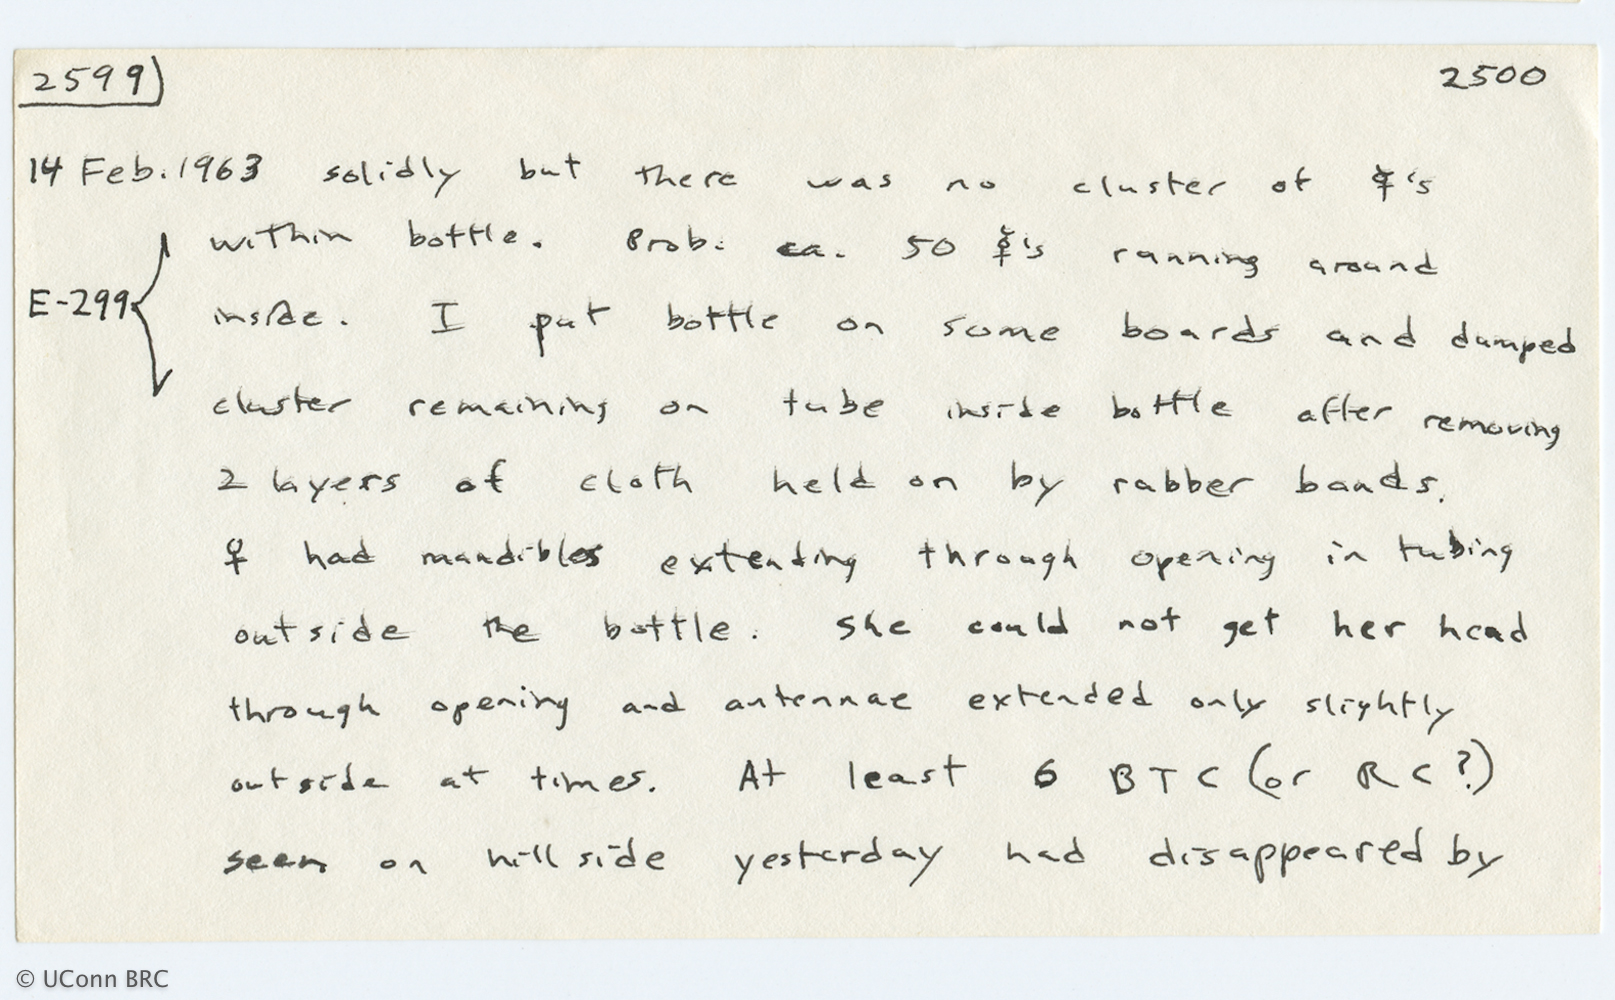 2599) 2500
14 Feb. 1963 solidly but there was no cluster of ☿'s
within bottle. Prob. ca. 50 ☿'s running around
E-299 inside. I put bottle on some boards and dumped
cluster remaining on tube inside bottle after removing
2 layers of cloth held on by rubber bands.
♀ had mandibles extending through opening in tubing
outside the bottle. She could not get her head
through opening and antennae extended only slightly
outside at times. At least 6 BTC (or RC?)
seen on hillside yesterday had disappeared by
© UConn BRC